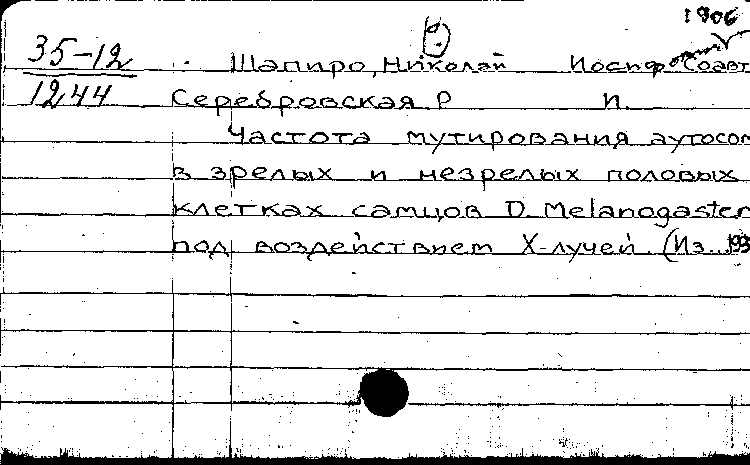 1906
35-12
1244
Шапиро, Николай Иосифович Соавт
Серебровская Р И.
Частота мутирования аутосом
в зрелых и незрелых половых
клетках самцов D. Melanogaster
под воздействием X-лучей (Из... 193